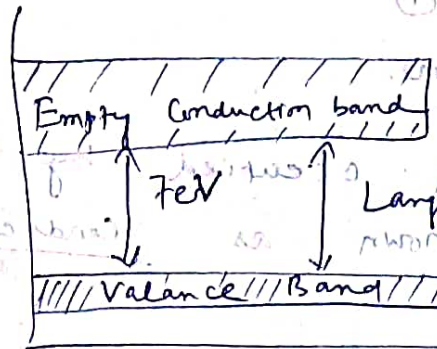 Empty Conduction band
7eV
Valance Band